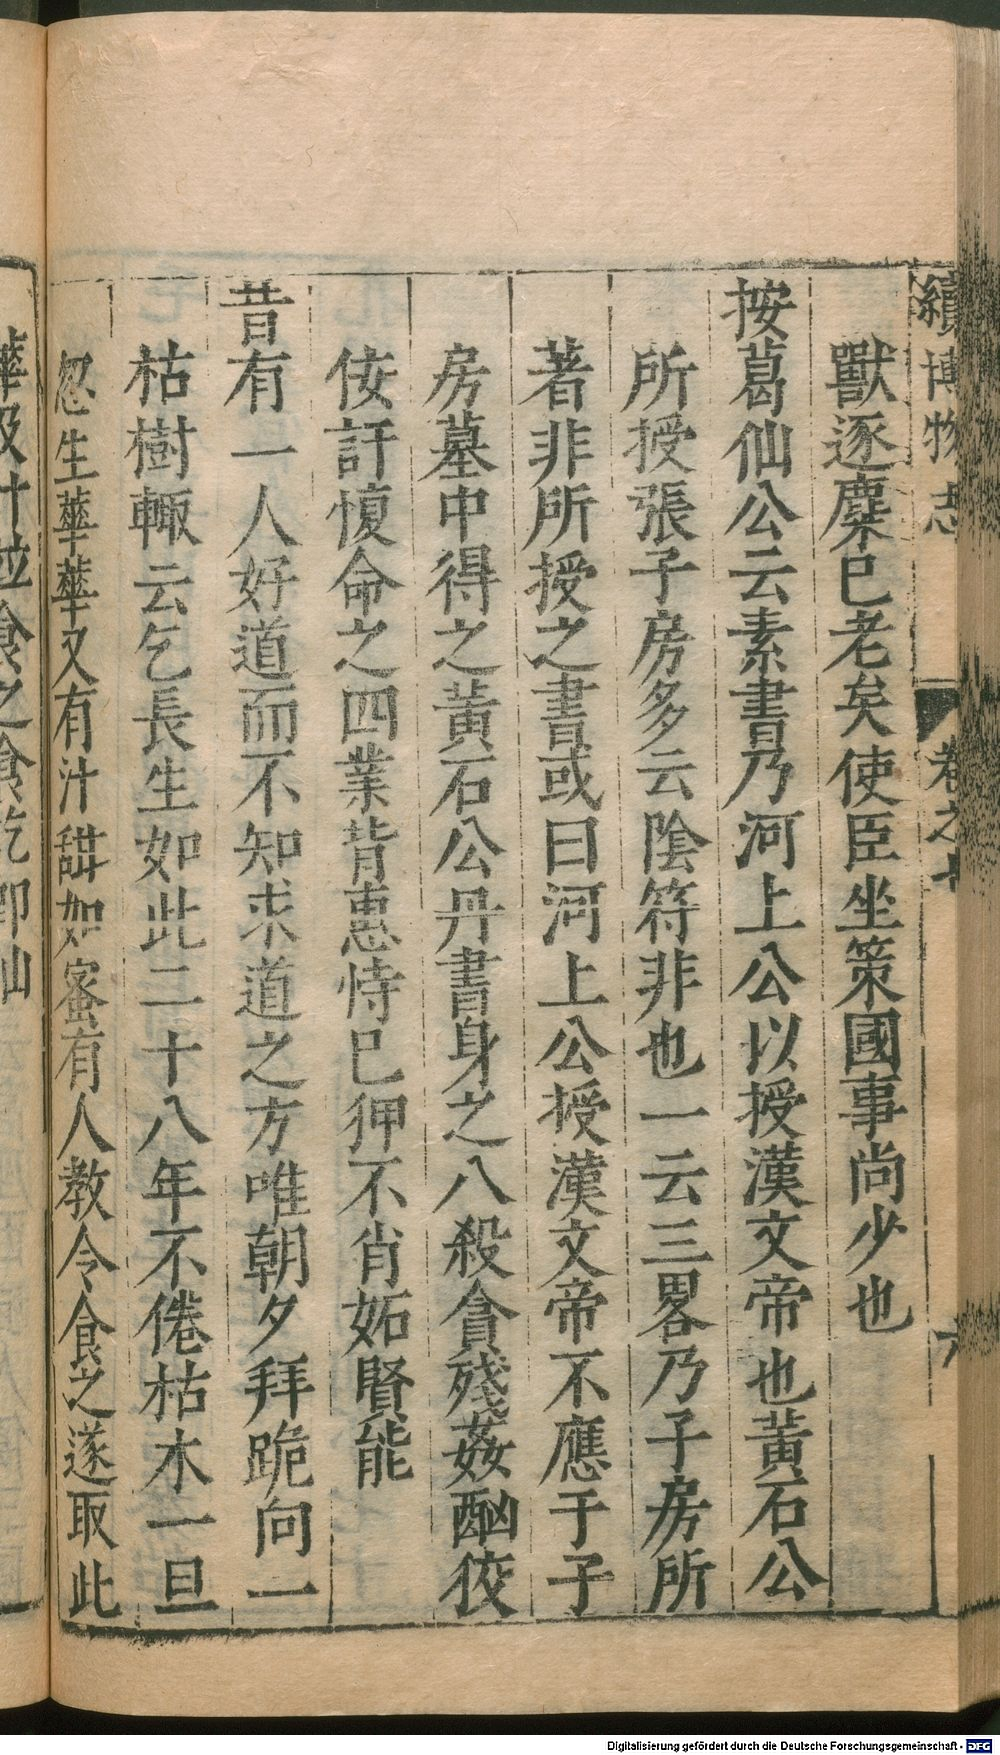 續博物志
卷之七
六
獸逐麋巳老矣使臣坐策國事尚少也
按葛仙公云素書乃河上公以授漢文帝也黃石公
所授張子房多云陰符非也一云三畧乃子房所
著非所授之書或曰河上公授漢文帝不應于子
房墓中得之黃石公丹書身之八殺貪殘姦酗狡
佞訐愎命之四業背恵恃巳狎不肖妬賢能
昔有一人好道而不知求道之方唯朝夕拜跪向一
枯樹輙云乞長生如此二十八年不倦枯木一旦
忽生華華又有汁甜如蜜有人教令食之遂取此
華及汁並食之食訖即仙
Digitalisierung gefördert durch die Deutsche Forschungsgemeinschaft - DFG